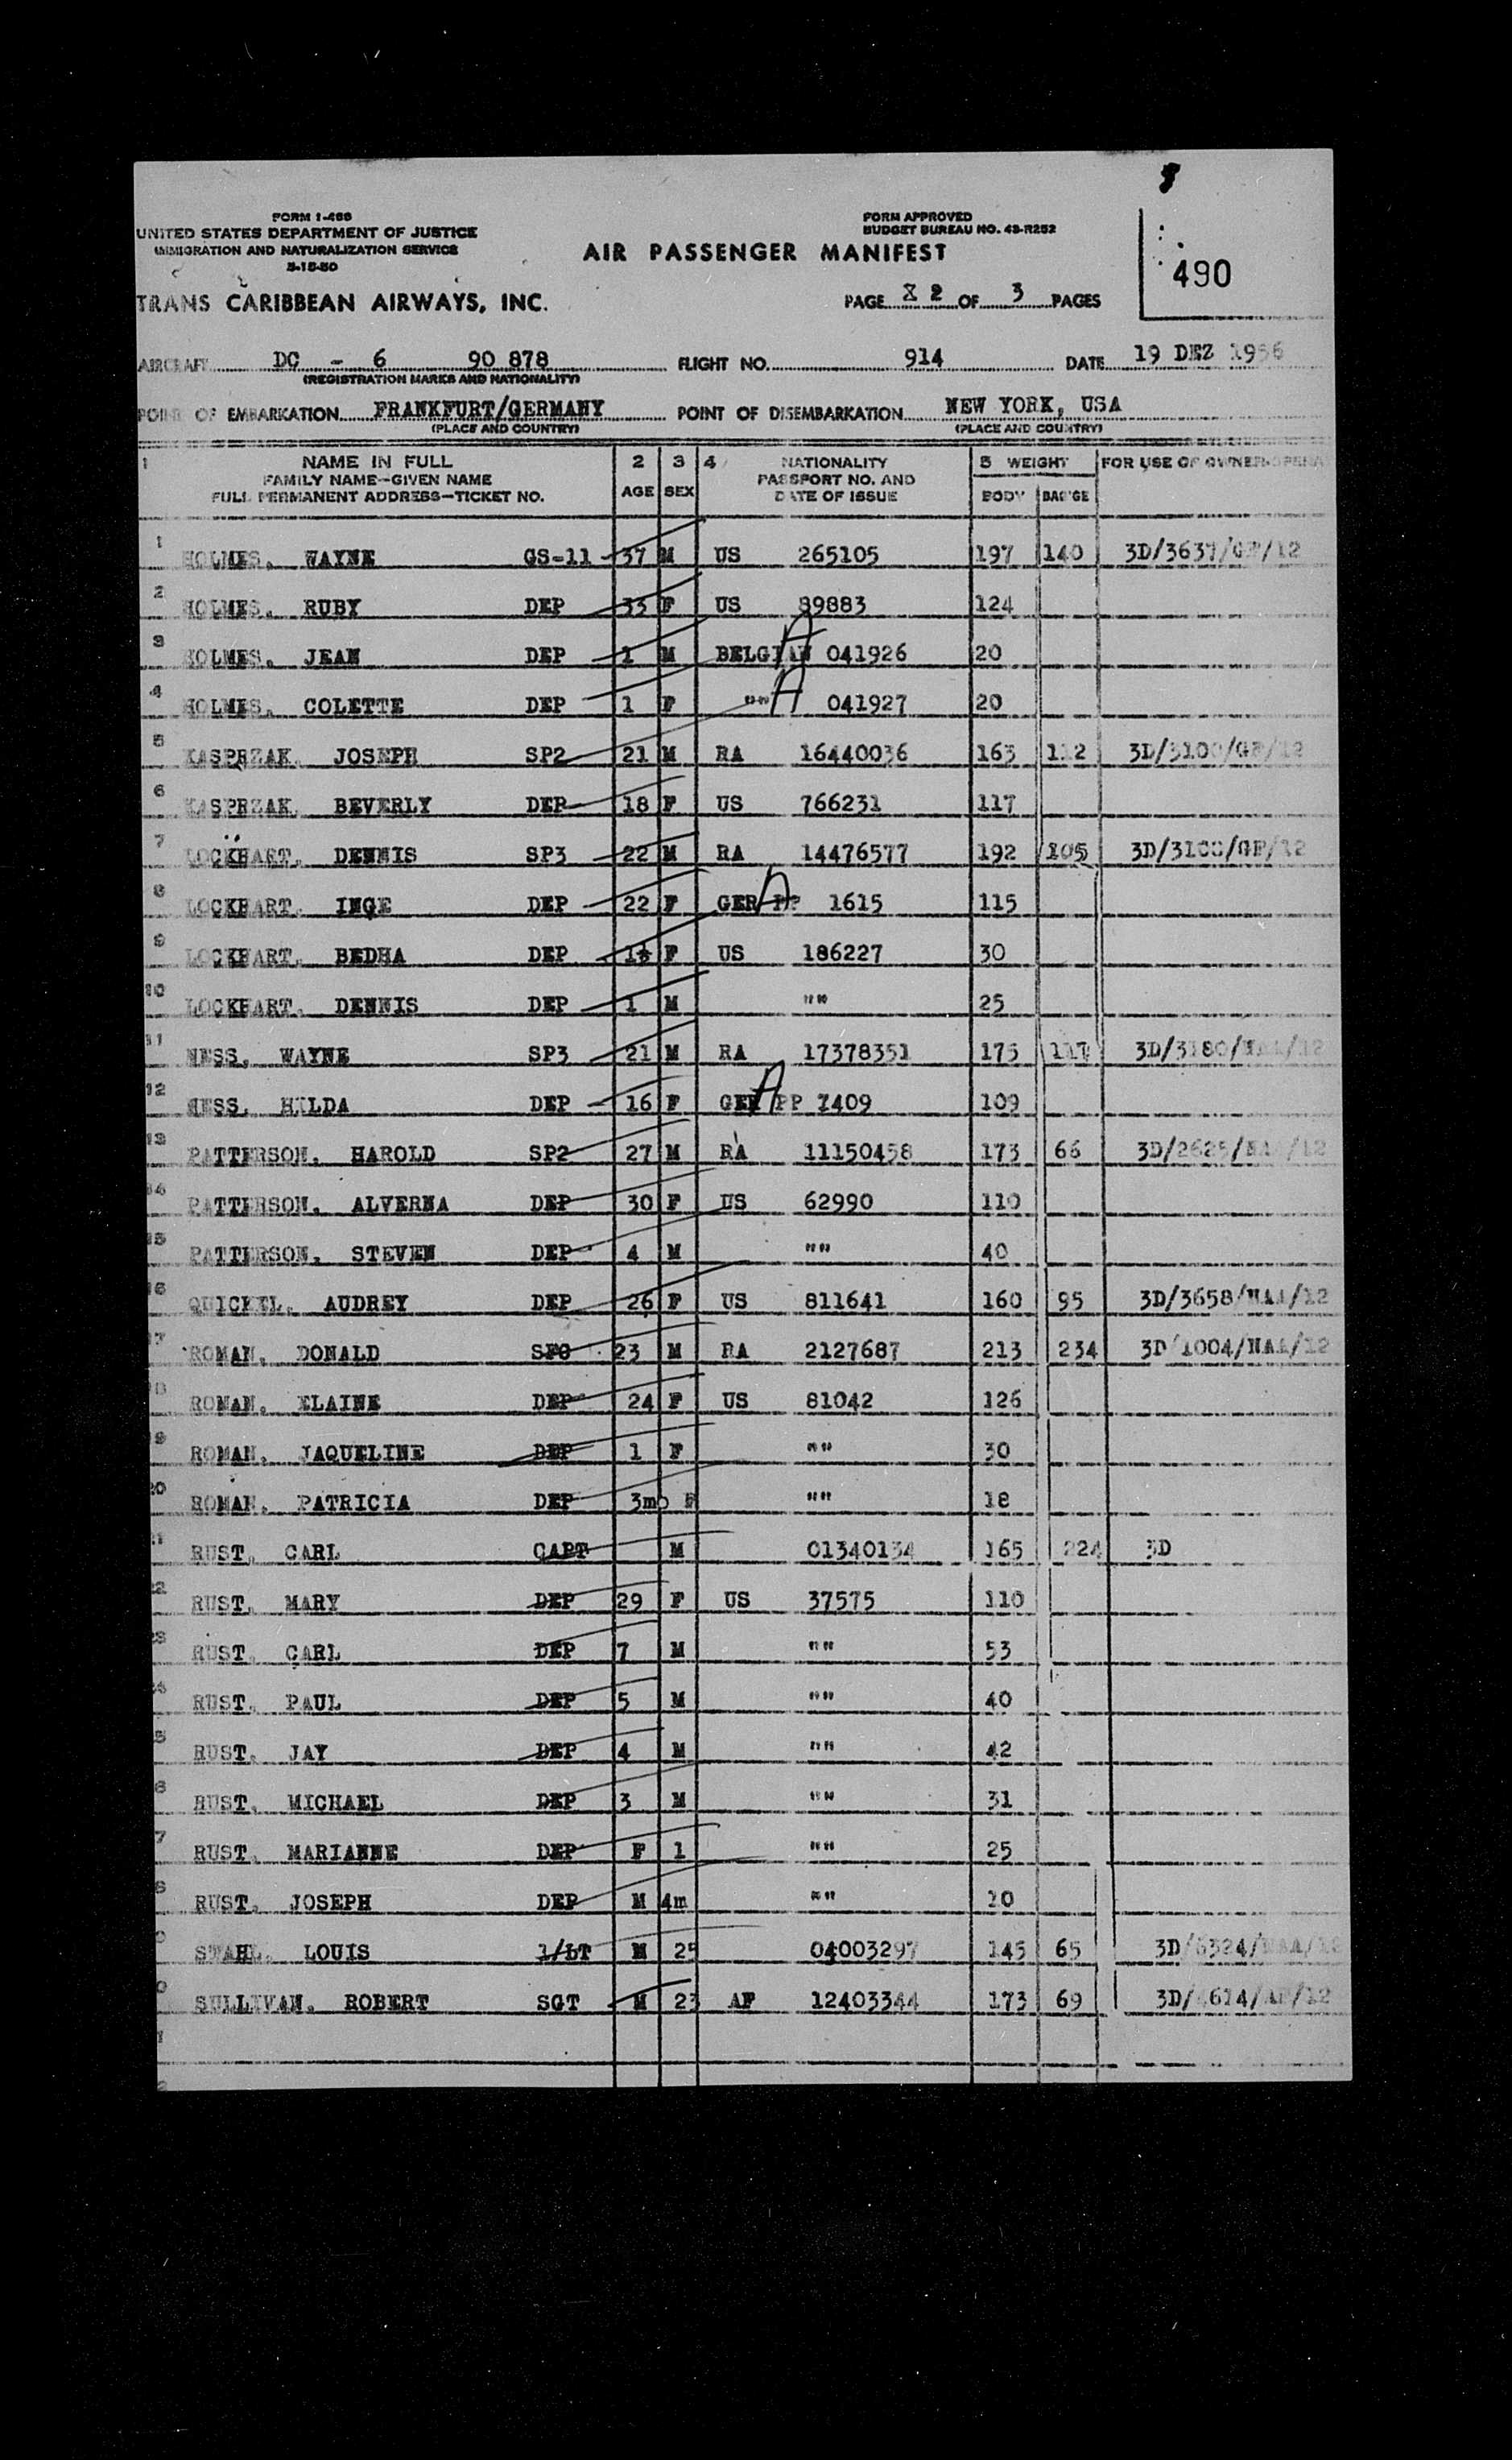 FORM I-466
UNITED STATES DEPARTMENT OF JUSTICE
IMMIGRATION AND NATURALIZATION SERVICE
3-15-50
FORM APPROVED
BUDGET BUREAU NO. 43-R252
AIR PASSENGER MANIFEST
490
TRANS CARIBBEAN AIRWAYS, INC.
PAGE X 2 OF 3 PAGES
AIRCRAFT DC - 6 90 878 FLIGHT NO. 914 DATE 19 DEZ 1956
(REGISTRATION MARKS AND NATIONALITY)
POINT OF EMBARKATION FRANKFURT/GERMANY POINT OF DISEMBARKATION NEW YORK, USA
(PLACE AND COUNTRY) (PLACE AND COUNTRY)
1 NAME IN FULL 2 3 4 NATIONALITY 5 WEIGHT FOR USE OF OWNER-OPERA
FAMILY NAME—GIVEN NAME PASSPORT NO. AND
FULL PERMANENT ADDRESS—TICKET NO. AGE SEX DATE OF ISSUE BODY BAG'GE
1 HOLMES, WAYNE GS-11 37 M US 265105 197 140 3D/3637/GF/12
2 HOLMES, RUBY DEP 33 F US 89883 124
3 HOLMES, JEAN DEP 1 M BELGIAN A 041926 20
4 HOLMES, COLETTE DEP 1 F "" A 041927 20
5 KASPRZAK, JOSEPH SP2 21 M RA 16440036 163 112 3D/3100/GF/12
6 KASPRZAK, BEVERLY DEP 18 F US 766231 117
7 LOCKHART, DENNIS SP3 22 M RA 14476577 192 105 3D/3100/GF/12
8 LOCKHART, INGE DEP 22 F GER A PP 1615 115
9 LOCKHART, BEDHA DEP F US 186227 30
10 LOCKHART, DENNIS DEP 1 M "" 25
11 NESS, WAYNE SP3 21 M RA 17378351 175 117 3D/3180/NAA/12
12 NESS, HILDA DEP 16 F GER A PP 7409 109
13 PATTERSON, HAROLD SP2 27 M RA 11150458 173 66 3D/2625/NAA/12
14 PATTERSON, ALVERNA DEP 30 F US 62990 110
15 PATTERSON, STEVEN DEP 4 M "" 40
16 QUICKEL, AUDREY DEP 26 F US 811641 160 95 3D/3658/NAA/12
17 ROMAN, DONALD SFC 23 M RA 2127687 213 234 3D/1004/NAA/12
18 ROMAN, ELAINE DEP 24 F US 81042 126
19 ROMAN, JAQUELINE DEP 1 F "" 30
20 ROMAN, PATRICIA DEP 3mo F "" 18
21 RUST, CARL CAPT M 01340134 165 224 3D
22 RUST, MARY DEP 29 F US 37575 110
23 RUST, CARL DEP 7 M "" 53
24 RUST, PAUL DEP 5 M "" 40
5 RUST, JAY DEP 4 M "" 42
6 RUST, MICHAEL DEP 3 M "" 31
7 RUST, MARIANNE DEP F 1 "" 25
8 RUST, JOSEPH DEP M 4m "" 10
9 STAHL, LOUIS 1/LT M 25 04003297 145 65 3D/6324/NAA/12
0 SULLIVAN, ROBERT SGT M 23 AF 12403344 173 69 3D/4614/AF/12